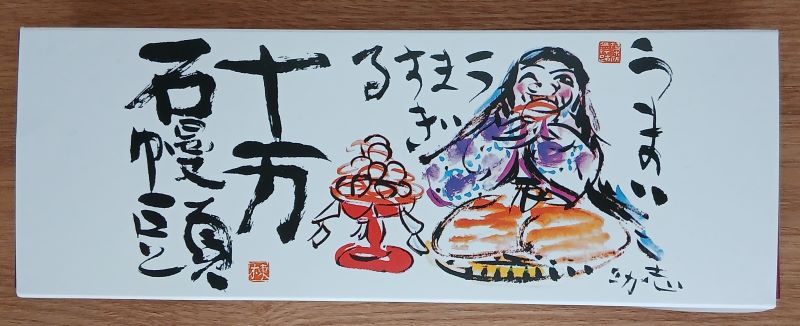 うまい
うますぎる
十万
石幔頭
志功